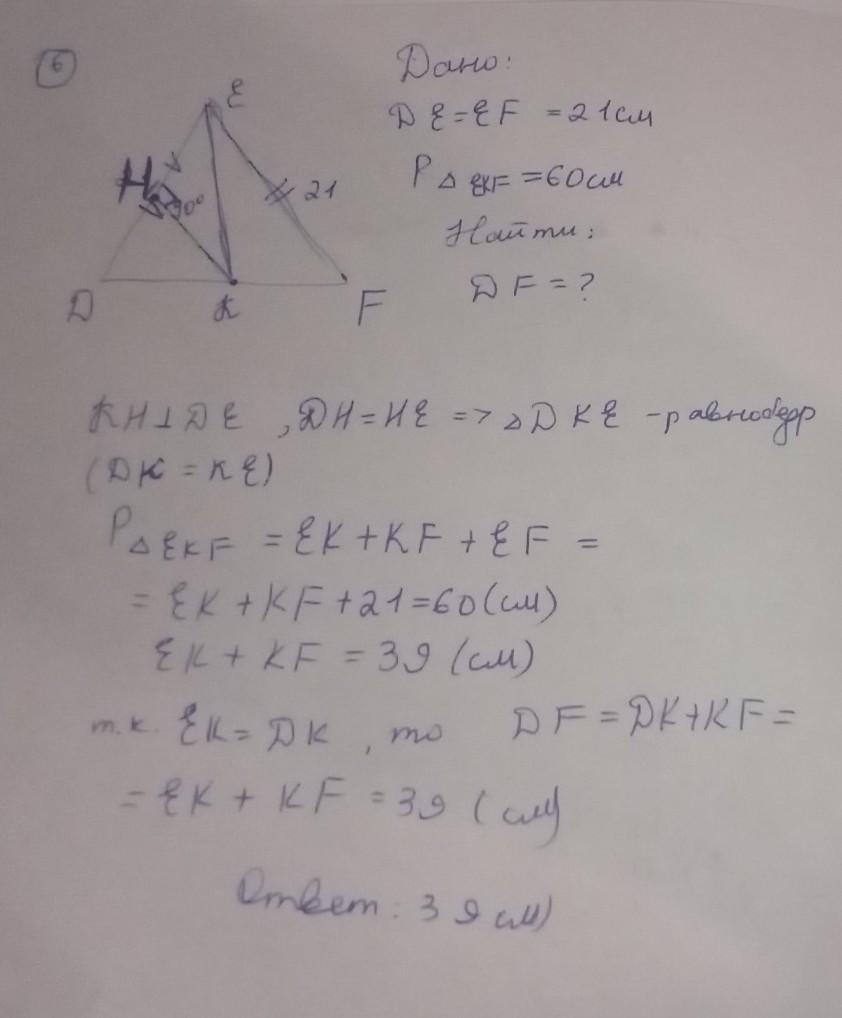 6
Дано:
DE = EF = 21 см
P △ EKF = 60 см
Найти:
DF = ?
E
H
90°
21
D
K
F
KH ⊥ DE , DH = HE => △ DKE - равнобедр
(DK = KE)
P △ EKF = EK + KF + EF =
= EK + KF + 21 = 60 (см)
EK + KF = 39 (см)
т.к. EK = DK , то DF = DK + KF =
= EK + KF = 39 (см)
Ответ: 39 см)